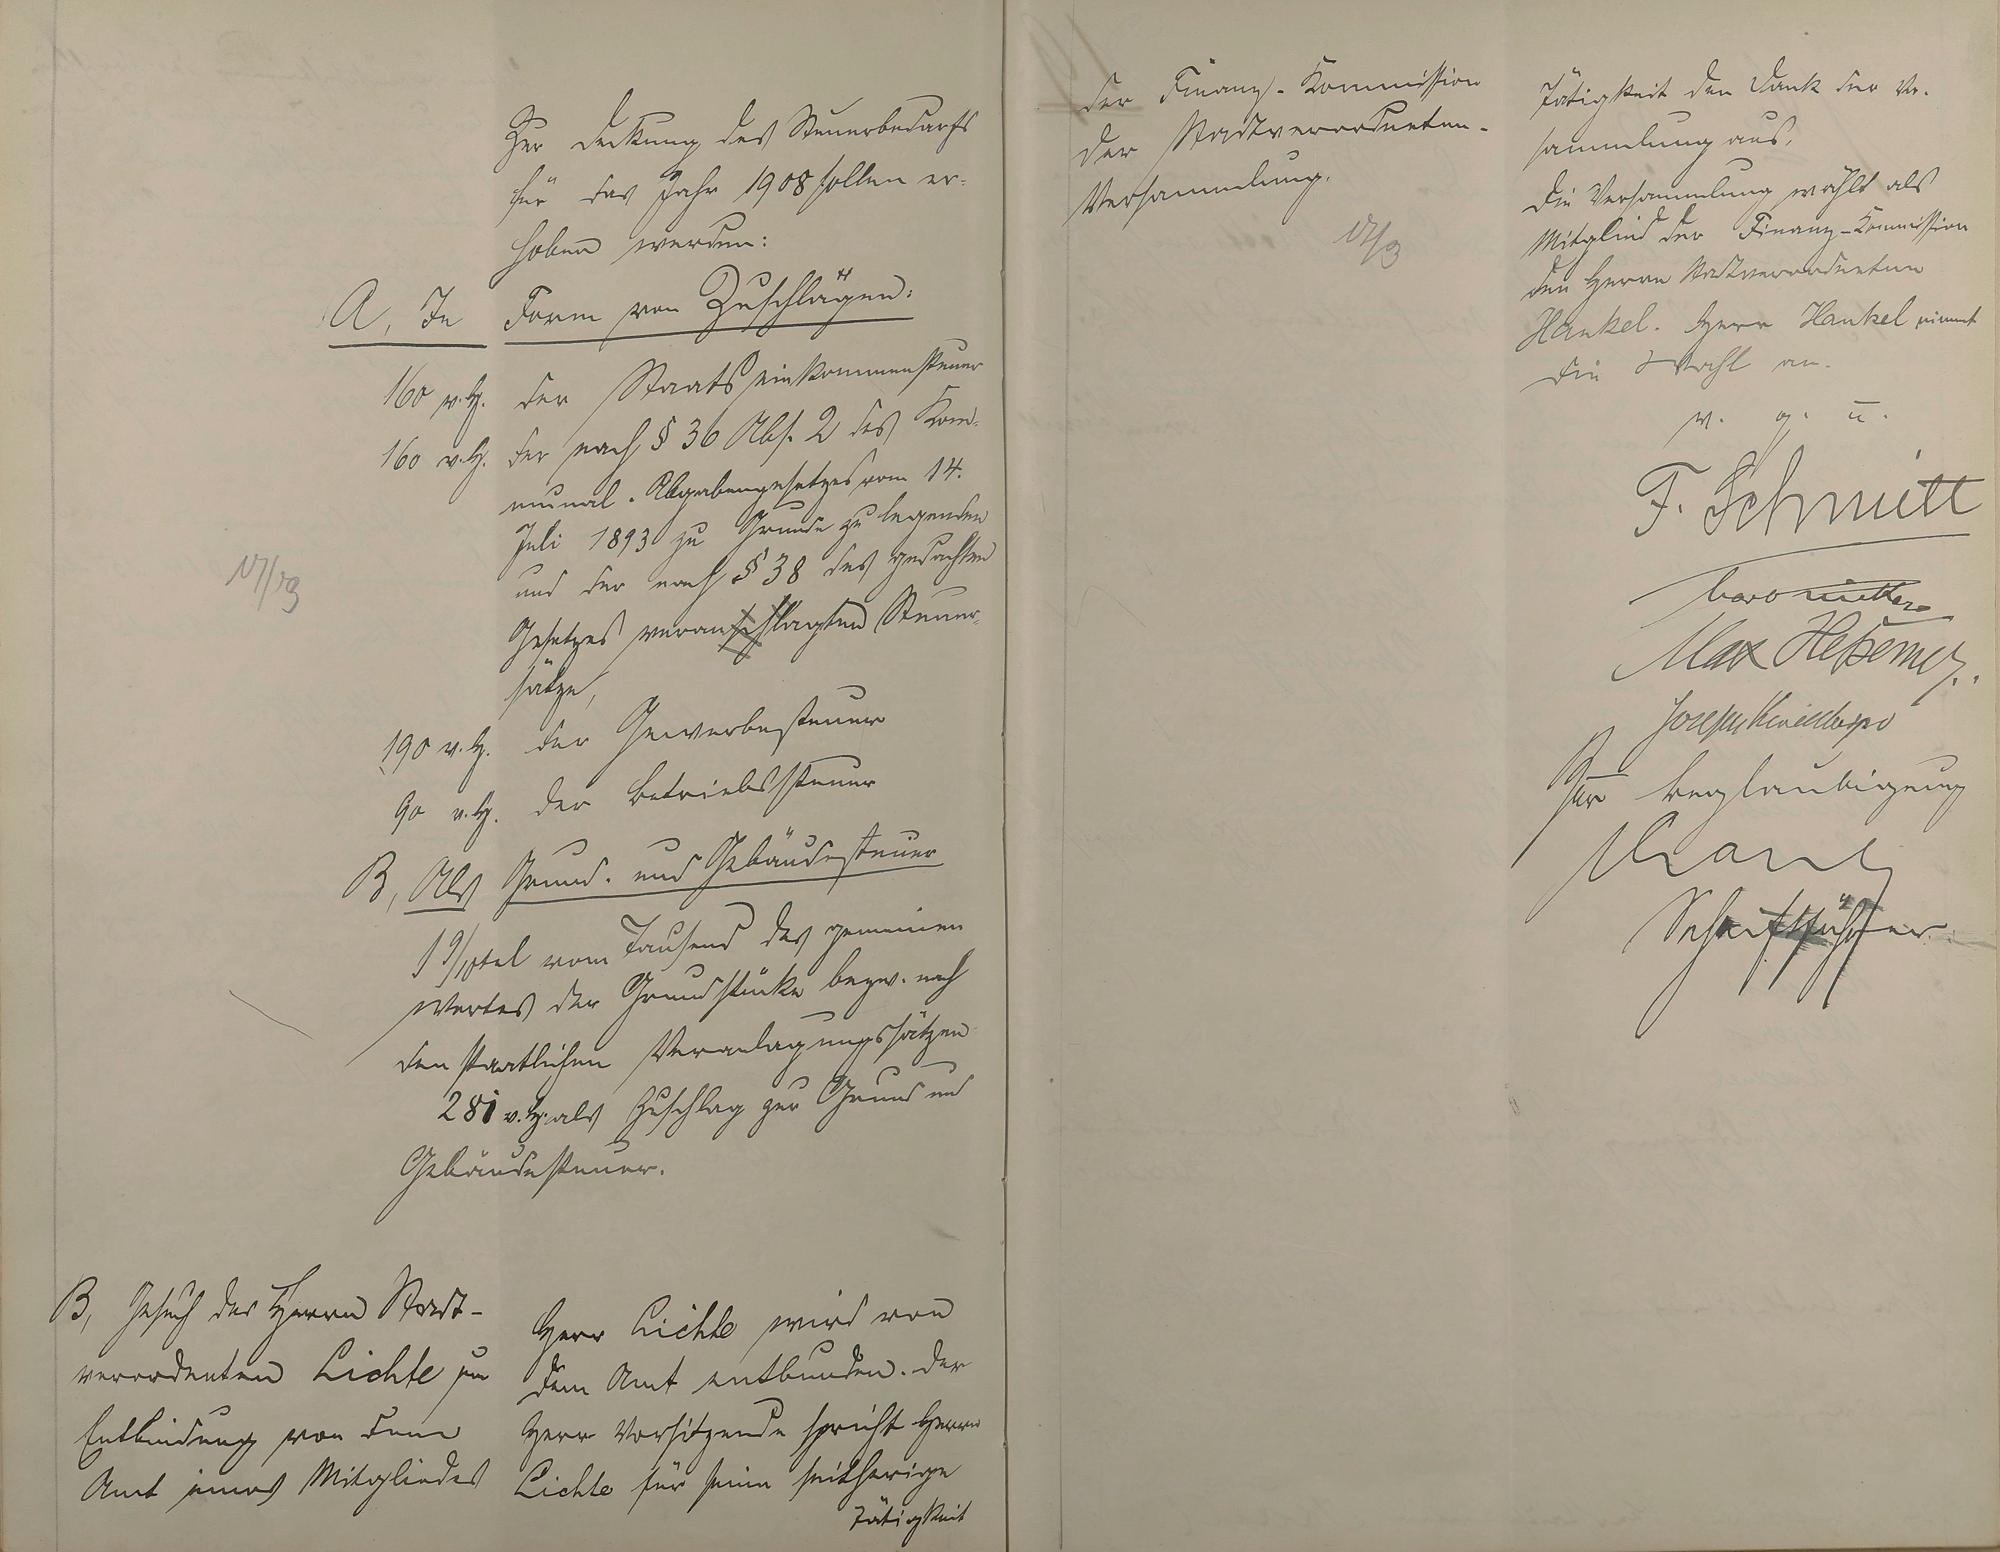 Zur Deckung des Steuerbedarfs
für das Jahr 1908 sollen er-
hoben werden:
A, In Form von Zuschlägen:
160 v.H. der Staatseinkommensteuer
160 v.H. der nach § 36 Abs. 2 des Kom-
munal-Abgabengesetzes vom 14.
Juli 1893 zu Grunde zu legenden
und der nach § 38 des gedachten
Gesetzes veranschlagten Steuer-
sätze,
190 v.H. der Gewerbesteuer
90 v.H. der Betriebssteuer
B, Als Grund- und Gebäudesteuer
1 9/10tel vom Tausend des gemeinen
Wertes der Grundstücke bezw. nach
den staatlichen Veranlagungssätzen
281 v.H. als Zuschlag zur Grund und
Gebäudesteuer.
B, Gesuch des Herrn Stadt-
verordenten Lichte um
Entbindung von dem
Amt eines Mitgliedes
Herr Lichte wird von
dem Amt entbunden. Der
Herr Vorsitzende spricht Herrn
Lichte für seine seitherige
Tätigkeit
der Finanz-Kommission
der Stadtverordneten-
Versammlung.
Tätigkeit den Dank der Ver-
sammlung aus.
Die Versammlung wählt als
Mitglied der Finanz-Kommission
den Herrn Stadtverordneten
Hankel. Herr Hankel nimmt
die Wahl an.
v. g. u.
F. Schmitt
Max
Joseph
Für Beglaubigung
Schriftführer